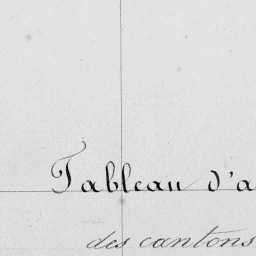 Tableau d'a
des cantons